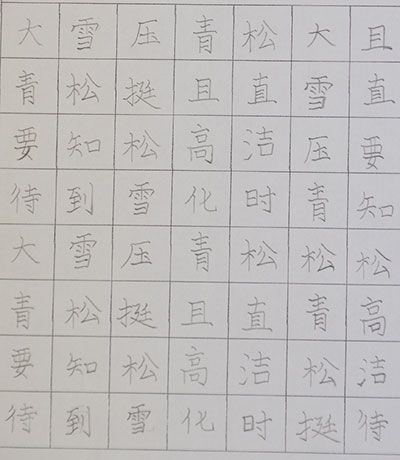 大雪压青松大且
青松挺且直雪直
要知松高洁压要
待到雪化时青知
大雪压青松松松
青松挺且直青高
要知松高洁松洁
待到雪化时挺待